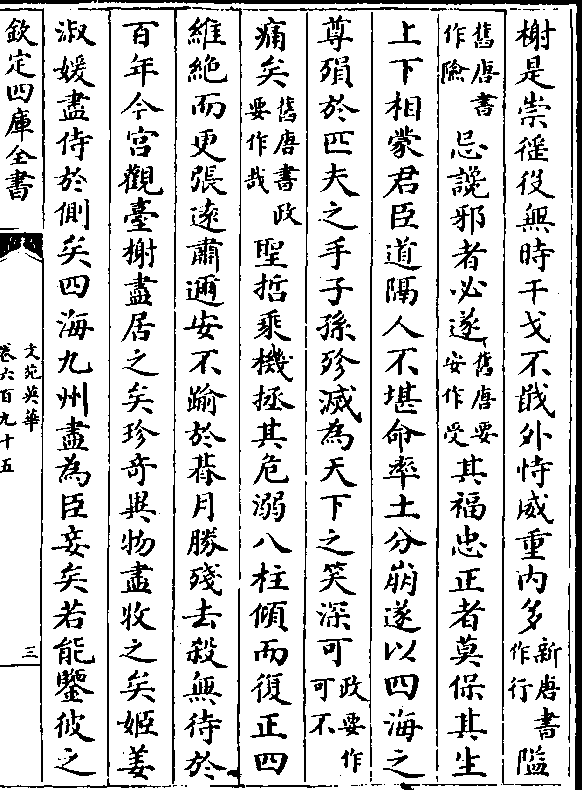 榭是崇徭役無時干戈不戢外恃威重内多新唐書作行隘
舊唐書作險忌讒邪者必遂舊唐要安作受其福忠正者莫保其生
上下相蒙君臣道隔人不堪命率土分崩遂以四海之
尊殞於匹夫之手子孫殄滅為天下之笑深可政要作可不
痛矣舊唐書政要作哉聖哲乘機拯其危溺八柱傾而復正四
維絶而更張逺肅邇安不踰於朞月勝殘去殺無待於
百年今宫觀臺榭盡居之矣珍奇異物盡收之矣姬姜
淑媛盡侍於側矣四海九州盡為臣妾矣若能鑒彼之
欽定四庫全書
文苑英華
卷六百九十五
三